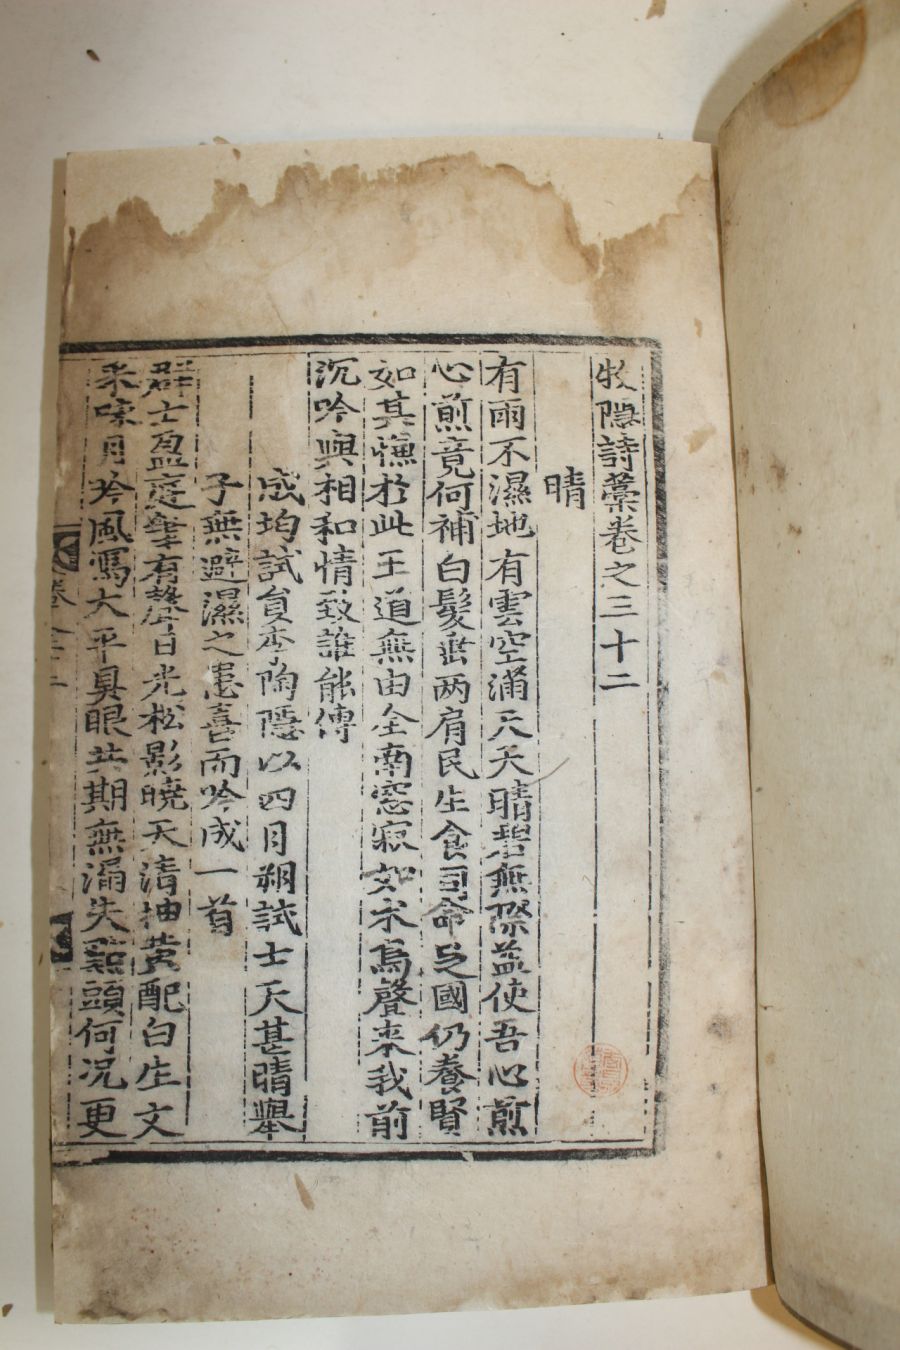 牧隱詩藁卷之三十二
晴
有雨不濕地有雲空滿天天晴碧無際益使吾心煎
心煎竟何補白髮垂两肩民生食司命足國仍養賢
如其憮於此王道無由全南窓寂如水鳥聲来我前
沉吟與相和情致誰能傳
成均試員李陶隱以四月朔試士天甚晴舉
子無避濕之患喜而吟成一首
群士盈庭筆有聲日光松影曉天清抽黃配白生文
采咏月吟風寫大平具眼共期無漏失點頭何况更